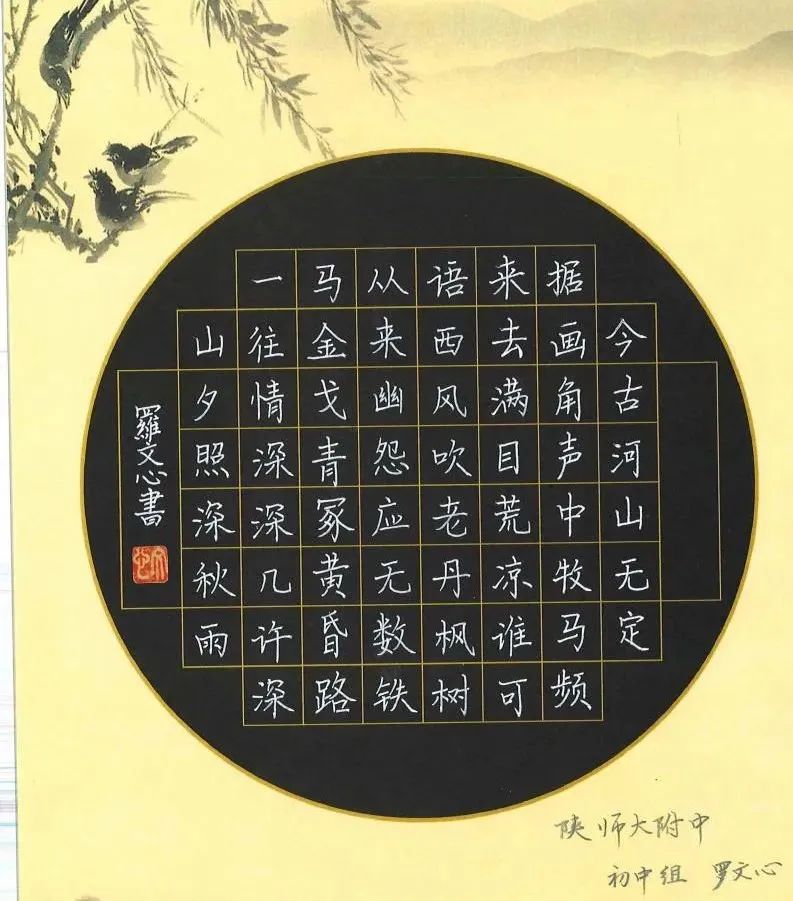 今古河山无定
据画角声中牧马频
来去满目荒凉谁可
语西风吹老丹枫树
从来幽怨应无数铁
马金戈青冢黄昏路
一往情深深几许深
山夕照深秋雨
羅文心書
陕师大附中
初中组 罗文心